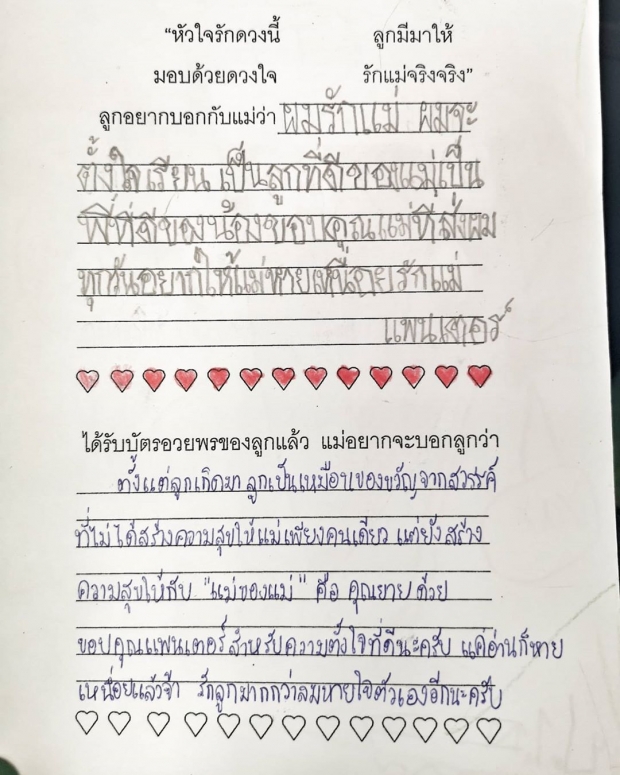 “หัวใจรักดวงนี้ ลูกมีมาให้
มอบด้วยดวงใจ รักแม่จริงจริง”
ลูกอยากบอกกับแม่ว่า ผมรักแม่ ผมจะ
ตั้งใจเรียน เป็นลูกที่ดีของแม่เป็น
พี่ที่ดีของน้องขอบคุณแม่ที่ส่งผม
ทุกวันอยากให้แม่หายเหนื่อยรักแม่
แพนเตอร์
ได้รับบัตรอวยพรของลูกแล้ว แม่อยากจะบอกลูกว่า
ตั้งแต่ลูกเกิดมา ลูกเป็นเหมือนของขวัญจากสวรรค์
ที่ไม่ได้สร้างความสุขให้แม่เพียงคนเดียว แต่ยังสร้าง
ความสุขให้กับ "แม่ของแม่" คือ คุณยายด้วย
ขอบคุณแพนเตอร์สำหรับความตั้งใจที่ดีนะครับ แค่อ่านก็หาย
เหนื่อยแล้วจ้า รักลูกมากกว่าลมหายใจตัวเองอีกนะครับ